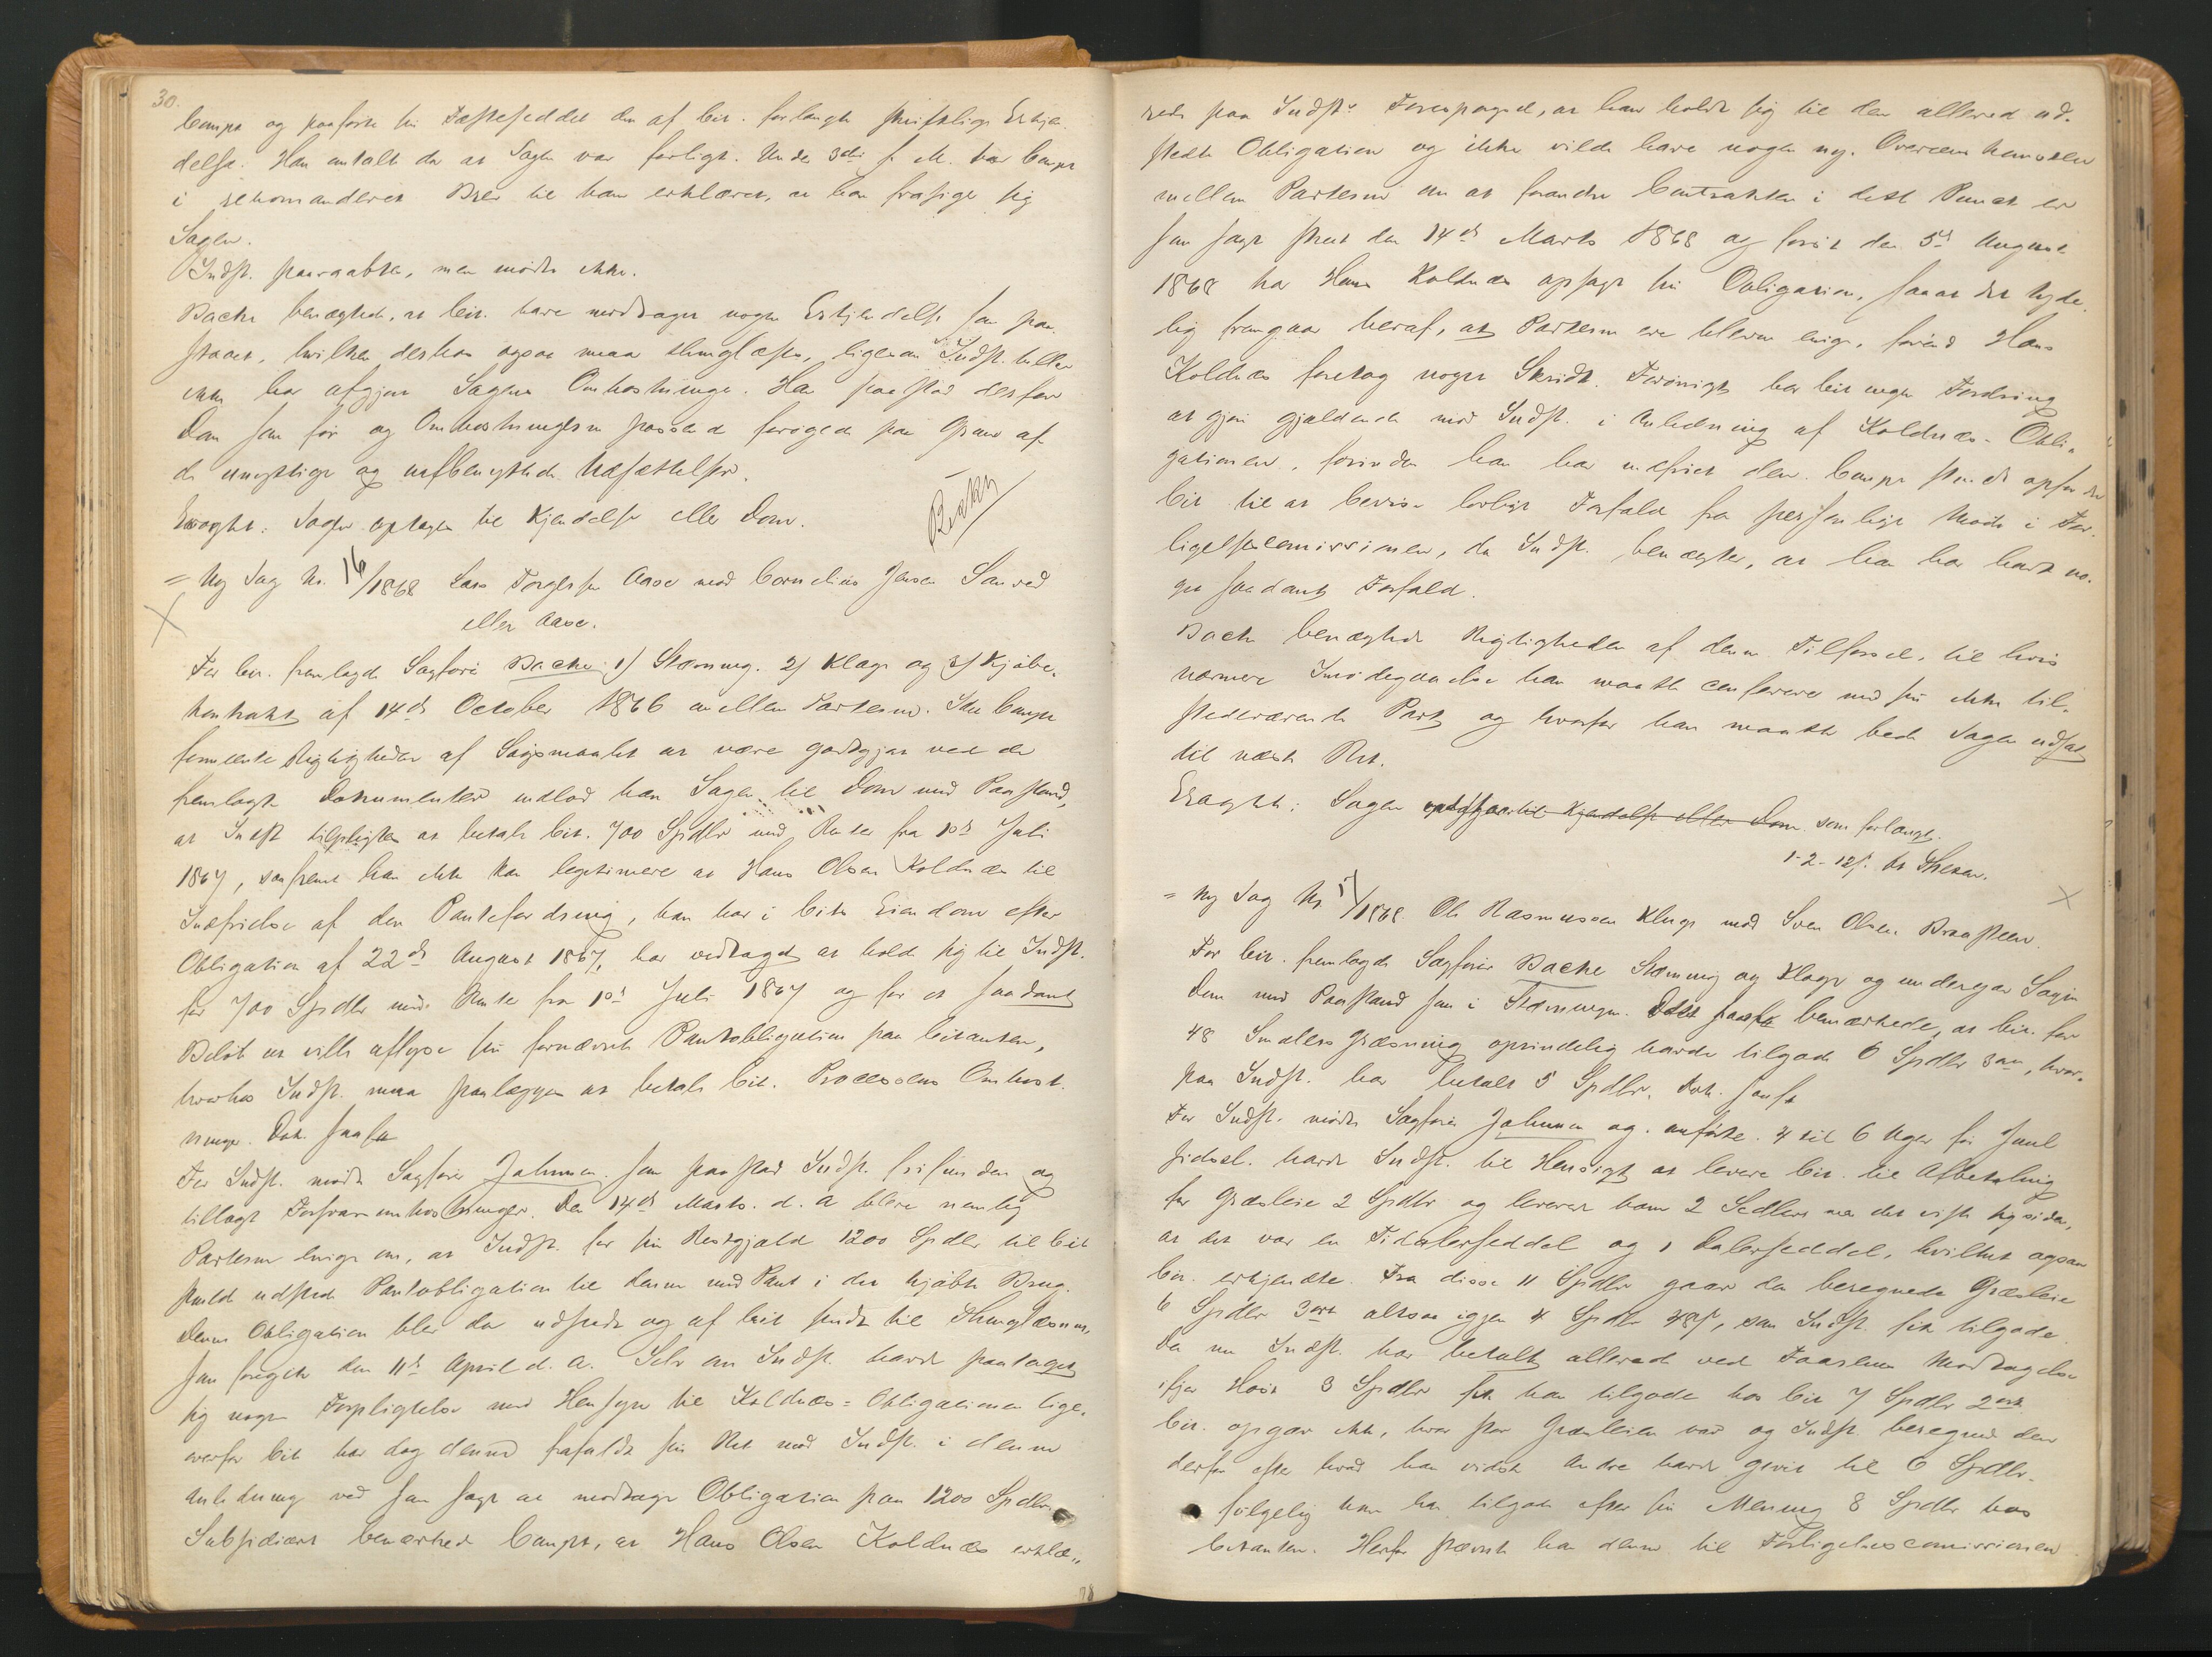 30.
Comps og paaførte sin Fæstesedde den af Cit. forlangte skriftlige Erkjen-
delse. Han antalte da at Sagen var forligt. Under 3die f. M. har Comps
i rekomanderet Brev til ham erklæret, at han frasiger sig
Sagen.
Indst. paaraabtes, men mødte ikke.
Bache benægtede, at Cit. have modtaget nogen Erkjendelse som paa-
staaet, hvilken desuden ogsaa maa thinglæses, ligesom Indst. heller
ikke har afgjort Sagens Omkostninger. Han paastod derfor
Dom som før og Omkostningerne passende forøgede paa Grund af
de unyttige og ubenyttede Udsættelser.
Eragtet: Sagen optages til Kjendelse eller Dom.
= Ny Sag No. 16/1868 Lars Torgersen Aase mod Cornelius Jensen Sanved
eller Aase.
For Cit. fremlagde Sagfører Bache 1) Stævning. 2) Klage og 3) Kjøbe-
kontrakt af 14de October 1866 mellem Parterne. Idet Comps
formente Rigtigheden af Søgsmaalet at være godtgjort ved de
fremlagte Dokumenter indlod han Sagen til Dom med Paastand,
at Indst tilpligtes at betale Cit. 700 Spdlr med Renter fra 1ste Juli
1867, saafremt han ikke kan legitimere at Hans Olsen Koldnæs til
Indfrielse af den Pantefordring, han har i Cits Eiendom efter
Obligation af 22de August 1867, har vedtaget at holde sig til Indst.
for 700 Spdlr med Rente fra 1ste Juli 1867 og for et saadant
Beløb at ville aflyse sin fornævnte Pantobligation paa Citanten,
hvorhos Indst. maa paalægges at betale Cit. Processens Omkost-
ninger. Dok. saasæ
For Indst. mødte Sagfører Johnsen som paastod Indst. frifunden og
tillagt Forsvarsomkostninger. Den 14de Marts d. A. bleve nemlig
Parterne enige om, at Indst. for sin Restgjæld 1200 Spdlr til Cit
skulde udstede Pantobligation til denne med Pant i det kjøbte Brug.
Denne Obligation blev da udstedt og af Cit sendt til Thinglæsning,
som foregik den 11te April d. A. Selv om Indst. havde paataget
sig nogen Forpligtelse med Hensyn til Koldnæs-Obligationen lige-
overfor Cit har dog denne frafaldt sin Ret mod Indst. i denne
Anledning ved som sagt at modtage Obligation paa 1200 Spdlr.
Subsidiært bemærkede Comps, at Hans Olsen Koldnæs erklæ-
28
rede paa Indst's Forespørgsel, at han holdt sig til den allerede ud-
stedte Obligation og ikke vilde have nogen ny. Overeenskomsten
mellem Parterne om at forandre Contrakten i dette Punct er
som sagt skeet den 14de Marts 1868 og først den 5te August
1868 har Hans Koldnæs opsagt sin Obligation, saa at det tyde-
lig fremgaar heraf, at Parterne ere blevne enige, førend Hans
Koldnæs foretog noget Skridt. Forøvrigt har Cit ingen Fordring
at gjøre gjældende mod Indst. i Anledning af Koldnæs-Obli-
gationen, forinden han har indfriet den. Comps. opfordrer
Cit til at bevise lovligt Forfald fra personligt Møde i For-
ligelsescomissionen, da Indst. benægter, at han har havt no-
get saadant Forfald.
Bache benægtede Rigtigheden af denne Tilførsel, til hvis
nærmere Imødegaaelse han maatte conferere med sin ikke til-
stedeværende Part og hvorfor han maatte bede Sagen udsat
til næste Ret.
Eragtet: Sagen optages til Kjendelse eller Dom som forlangt.
1-2-12/. Ar Stenen.
= Ny Sag No. 17/1868. Ole Rasmussen Kluge mod Sven Olsen Braasteen.
For Cit. fremlagde Sagfører Bache Stævning og Klage og undergav Sagen
Dom med Paastand som i Stævningen. bemærkede, at Cit. for
48 Smalers Græsning oprindelig havde tilgode 6 Spdlr 3 ort, hvor-
paa Indst. har betalt 5 Spdlr. Dok. saasæ
For Indst. mødte Sagfører Johnsen og anførte. 4 til 6 Uger før Juul
sidstl. havde Indst. til Hensigt at levere Cit. til Afbetaling
for Græsleie 2 Spdlr og leverede ham 2 Sedler men det viste sig siden,
at det var en Tidalerseddel og 1 Dalerseddel, hvilket ogsaa
Cit. erkjendte. Fra disse 11 Spdlr gaar da beregnede Græsleie
6 Spdlr 3 ort altsaa igjen 4 Spdlr 48 s, som Indst. fik tilgode.
Da nu Indst. har betalt allerede ved Faarenes Modtagelse
ifjor Høst 3 Spdlr fik han tilgode hos Cit 7 Spdlr 2 ort
Cit. opgav ikke, hvor stor Græsleien var og Indst. beregnede den
derfor efter hvad han vidste Andre havde givet til 6 Spdlr.
følgelig har han tilgode efter sin Mening 8 Spdlr hos
Citanten. Herfor stævnte han denne til Forligelsescomissionen